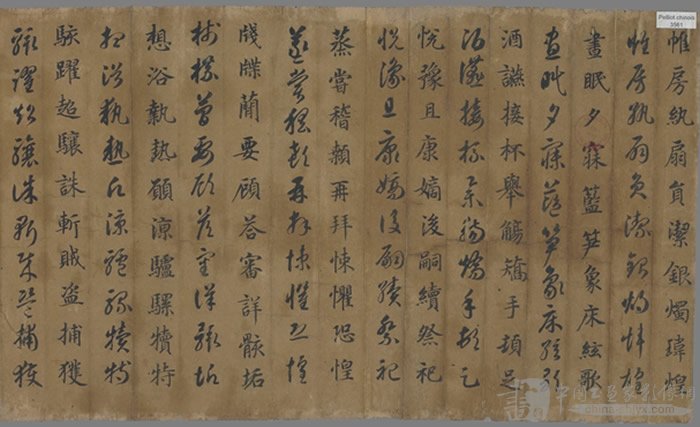 Pelliot chinois
3561
帷房紈扇員潔銀燭瑋煌
帷房紈扇員潔銀燭煒煌
晝眠夕寐藍笋象床絃歌
晝眠夕寐藍笋象床絃歌
酒讌接杯舉觴矯手頓足
酒讌接杯舉觴矯手頓足
悅豫且康嫡後嗣續祭祀
悅豫且康嫡後嗣續祭祀
蒸嘗稽顙再拜悚懼恐惶
蒸嘗稽顙再拜悚懼恐惶
牋牒簡要顧答審詳骸垢
牋牒簡要顧答審詳骸垢
想浴執熱願涼驢騾犢特
想浴執熱願涼驢騾犢特
駭躍超驤誅斬賊盜捕獲
駭躍超驤誅斬賊盜捕獲